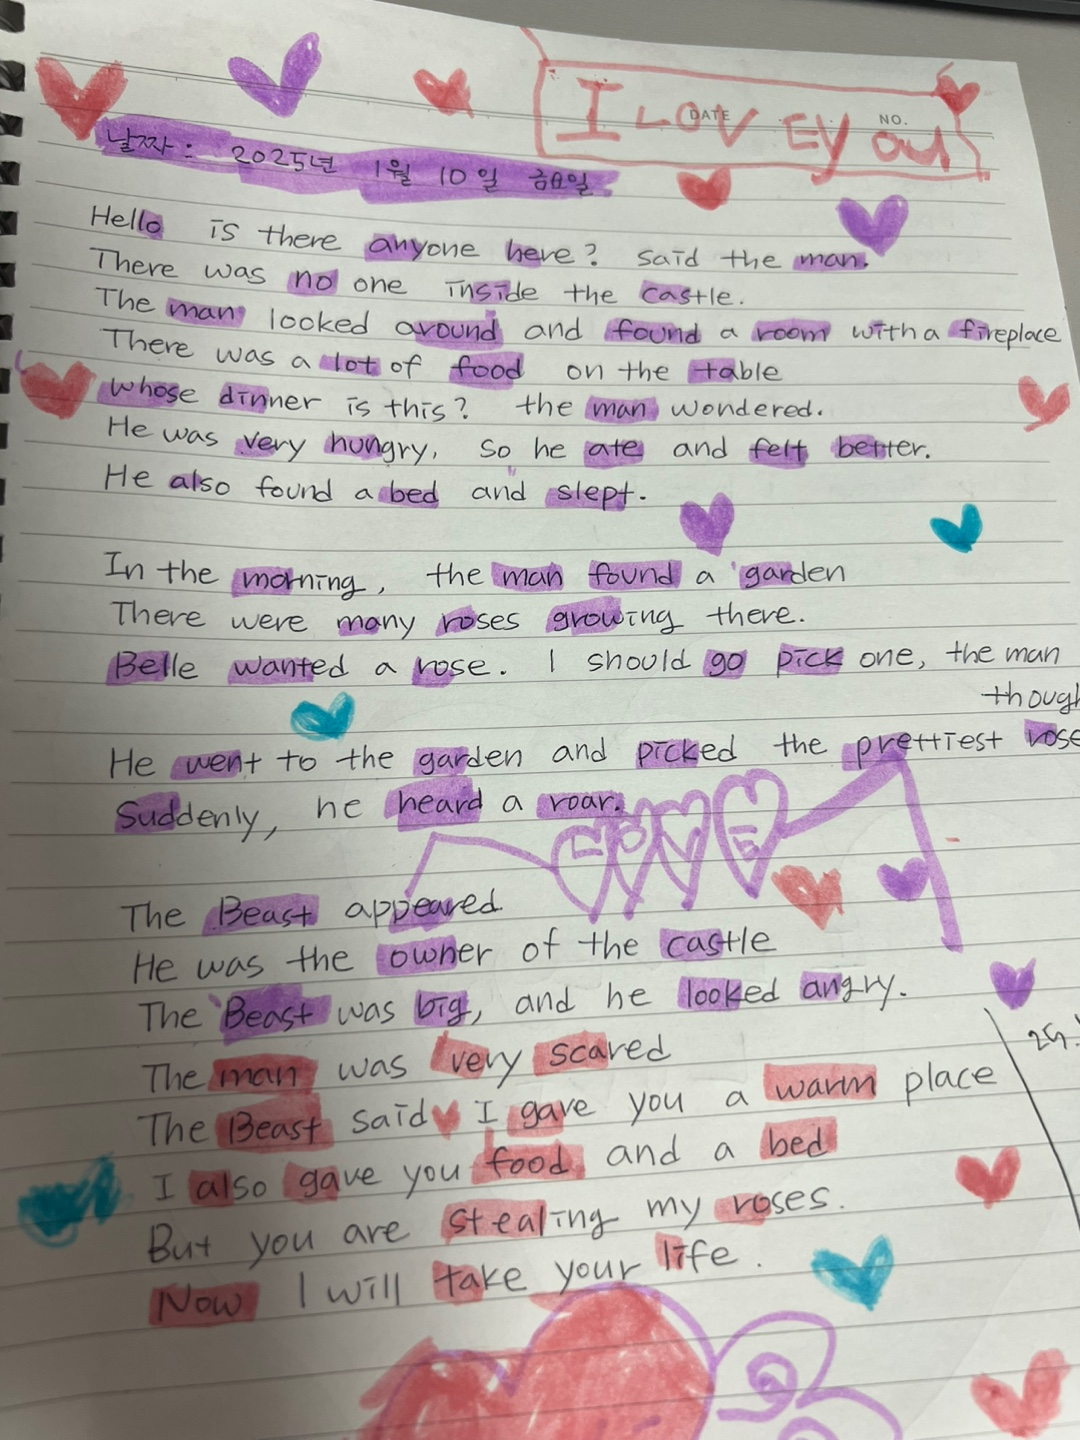 I LOVEYou
DATE
NO.
날짜: 2025년 1월 10일 금요일
Hello is there anyone here? said the man.
There was no one inside the castle.
The man looked around and found a room with a fireplace
There was a lot of food on the table
whose dinner is this? the man wondered.
He was very hungry, so he ate and felt better.
He also found a bed and slept.
In the morning, the man found a garden
There were many roses growing there.
Belle wanted a rose. I should go pick one, the man
though
He went to the garden and picked the prettiest rose
Suddenly, he heard a roar.
LOVE
The Beast appeared
He was the owner of the castle
The Beast was big, and he looked angry.
The man was very scared
The Beast said I gave you a warm place
I also gave you food and a bed
But you are stealing my roses.
Now I will take your life.